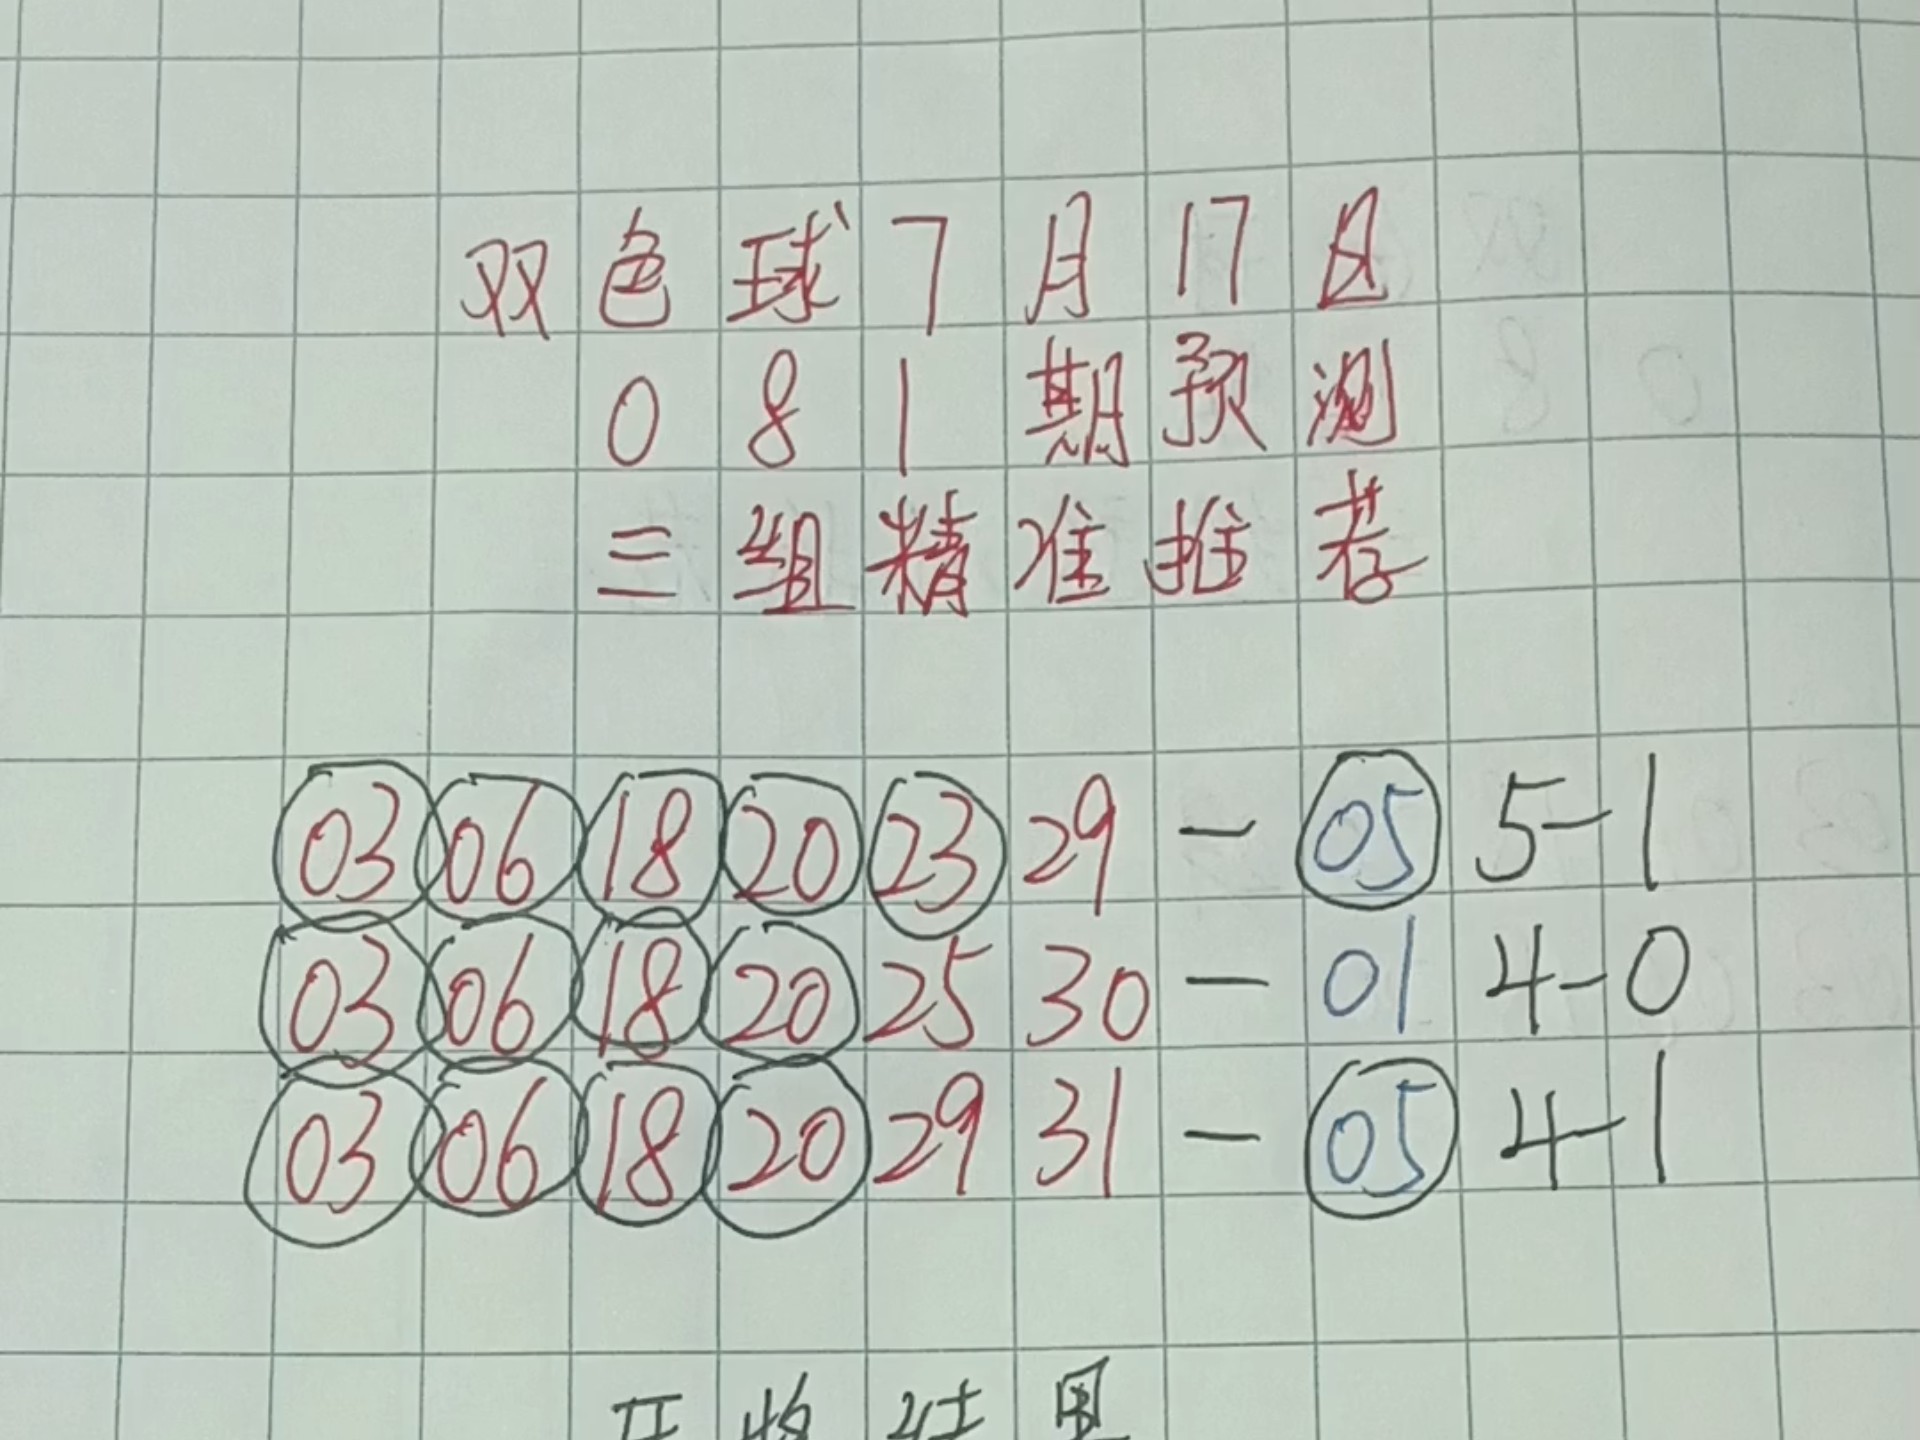 双色球7月17日
081期预测
三组精准推荐
03 06 18 20 23 29 — 05 5-1
03 06 18 20 25 30 — 01 4-0
03 06 18 20 29 31 — 05 4-1